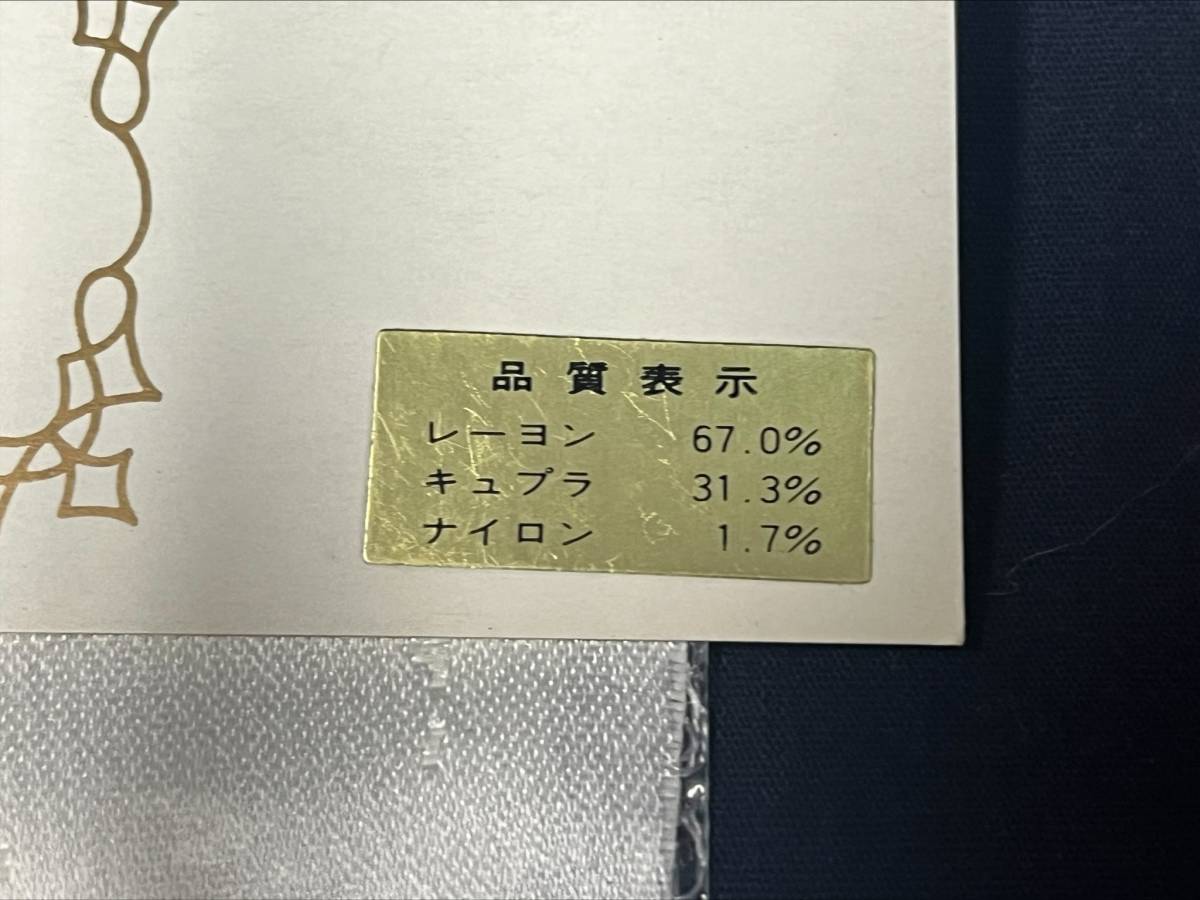 品質表示
レーヨン 67.0%
キュプラ 31.3%
ナイロン 1.7%